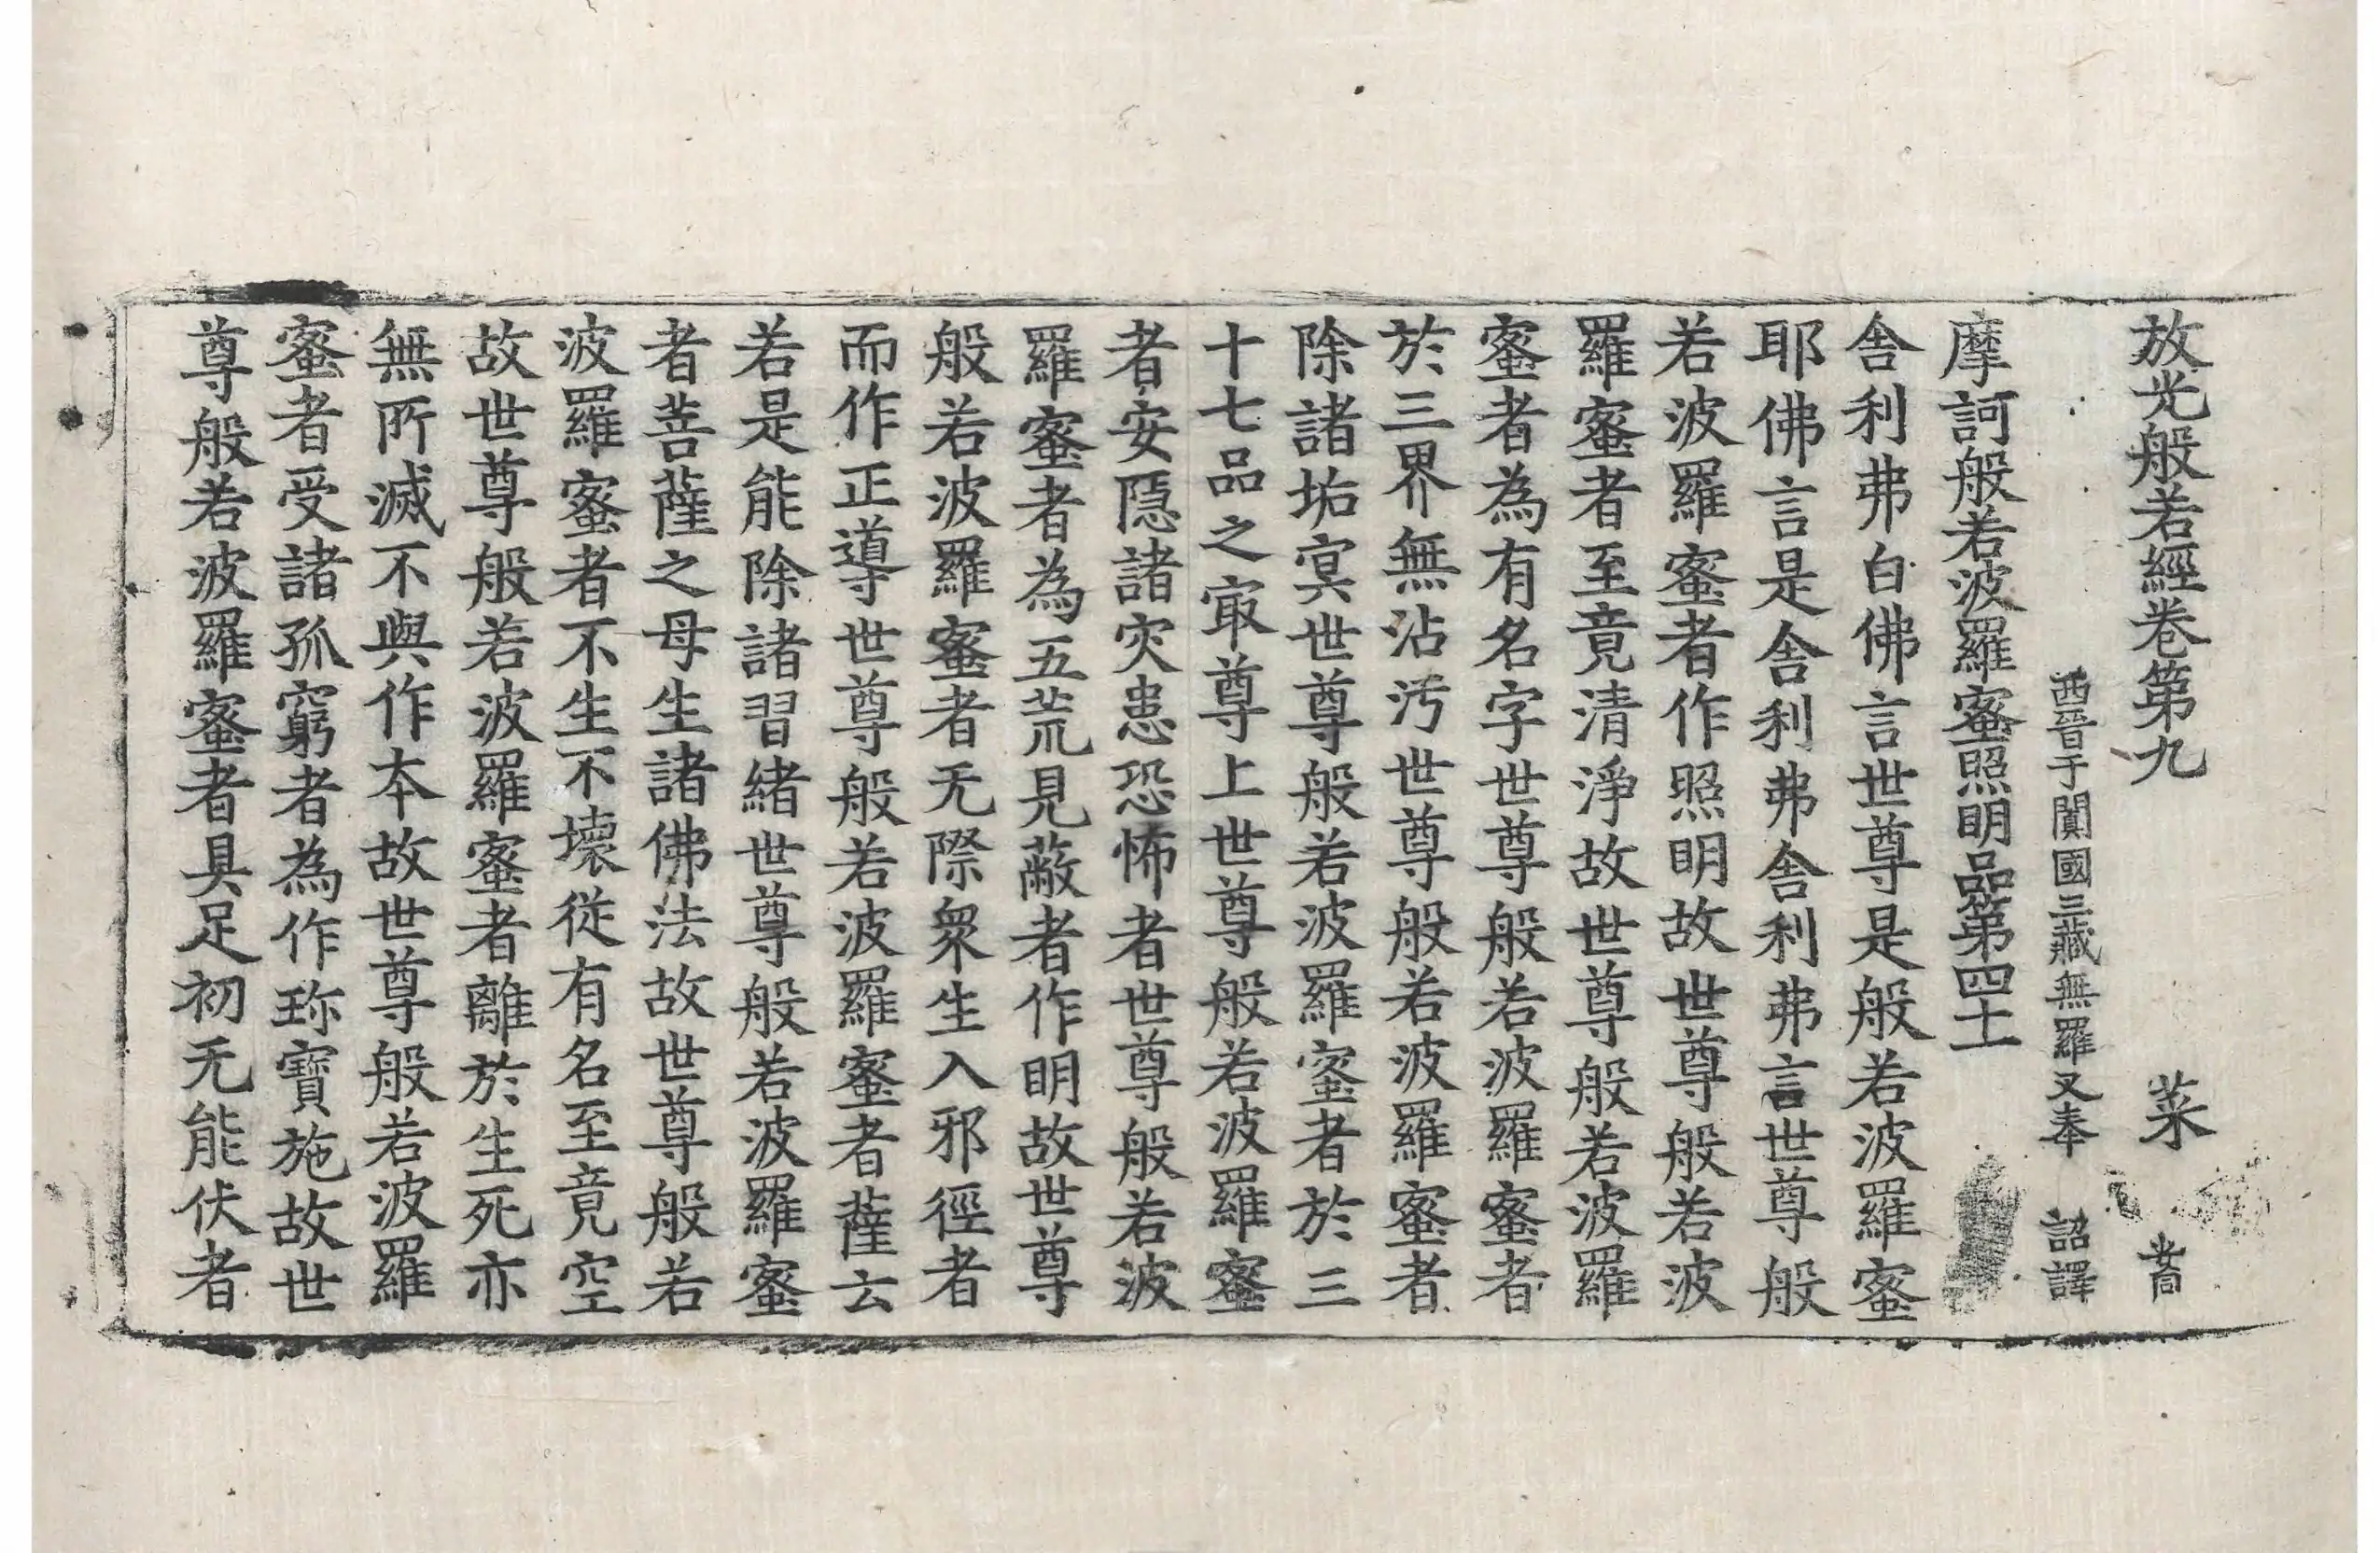 放光般若經卷第九 菜
西晉于闐國三藏無羅叉奉 詔譯
摩訶般若波羅蜜照明品第四十
舎利弗白佛言世尊是般若波羅蜜
耶佛言是舎利弗舎利弗言世尊般
若波羅蜜者作照明故世尊般若波
羅蜜者至竟清淨故世尊般若波羅
蜜者為有名字世尊般若波羅蜜者
於三界無沾汚世尊般若波羅蜜者
除諸垢㝠世尊般若波羅蜜者於三
十七品之㝡尊上世尊般若波羅蜜
者安隱諸灾患恐怖者世尊般若波
羅蜜者為五荒見蔽者作明故世尊
般若波羅蜜者无際衆生入邪徑者
而作正導世尊般若波羅蜜者薩云
若是能除諸習緒世尊般若波羅蜜
者菩薩之母生諸佛法故世尊般若
波羅蜜者不生不壞從有名至竟空
故世尊般若波羅蜜者離於生死亦
無所滅不與作本故世尊般若波羅
蜜者受諸孤窮者為作珎寶施故世
尊般若波羅蜜者具足初无能伏者